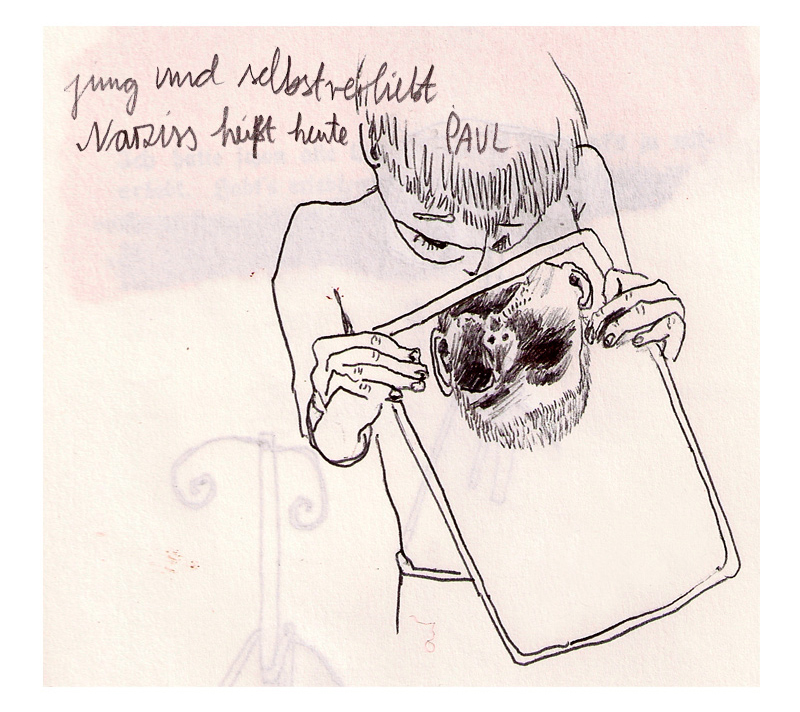 jung und selbstverliebt
Narziss heißt heute PAUL